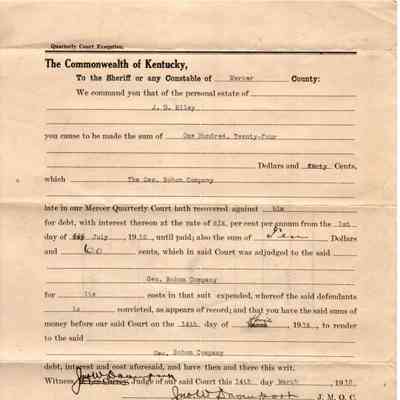 Quarterly Court Execution.
The Commonwealth of Kentucky,
To the Sheriff or any Constable of Mercer County:
We command you that of the personal estate of
J. D. Riley
you cause to be made the sum of One Hundred, Twenty-Four
Dollars and Cents,
which The Geo. Bohon Company
late in our Mercer Quarterly Court hath recovered against him
for debt, with interest thereon at the rate of six, per cent per annum from the 1st
day of July , until paid; also the sum of Ten Dollars
and 60 cents, which in said Court was adjudged to the said
Geo. Bohon Company
for its costs in that suit expended, whereof the said defendants
is convicted, as appears of record; and that you have the said sums of
money before our said Court on the 14th day of , to render
to the said
Geo. Bohon Company
debt, interest and cost aforesaid, and have then and there this writ.
Witness, Judge of our Said Court this 14th day March
J. M. Q. C.